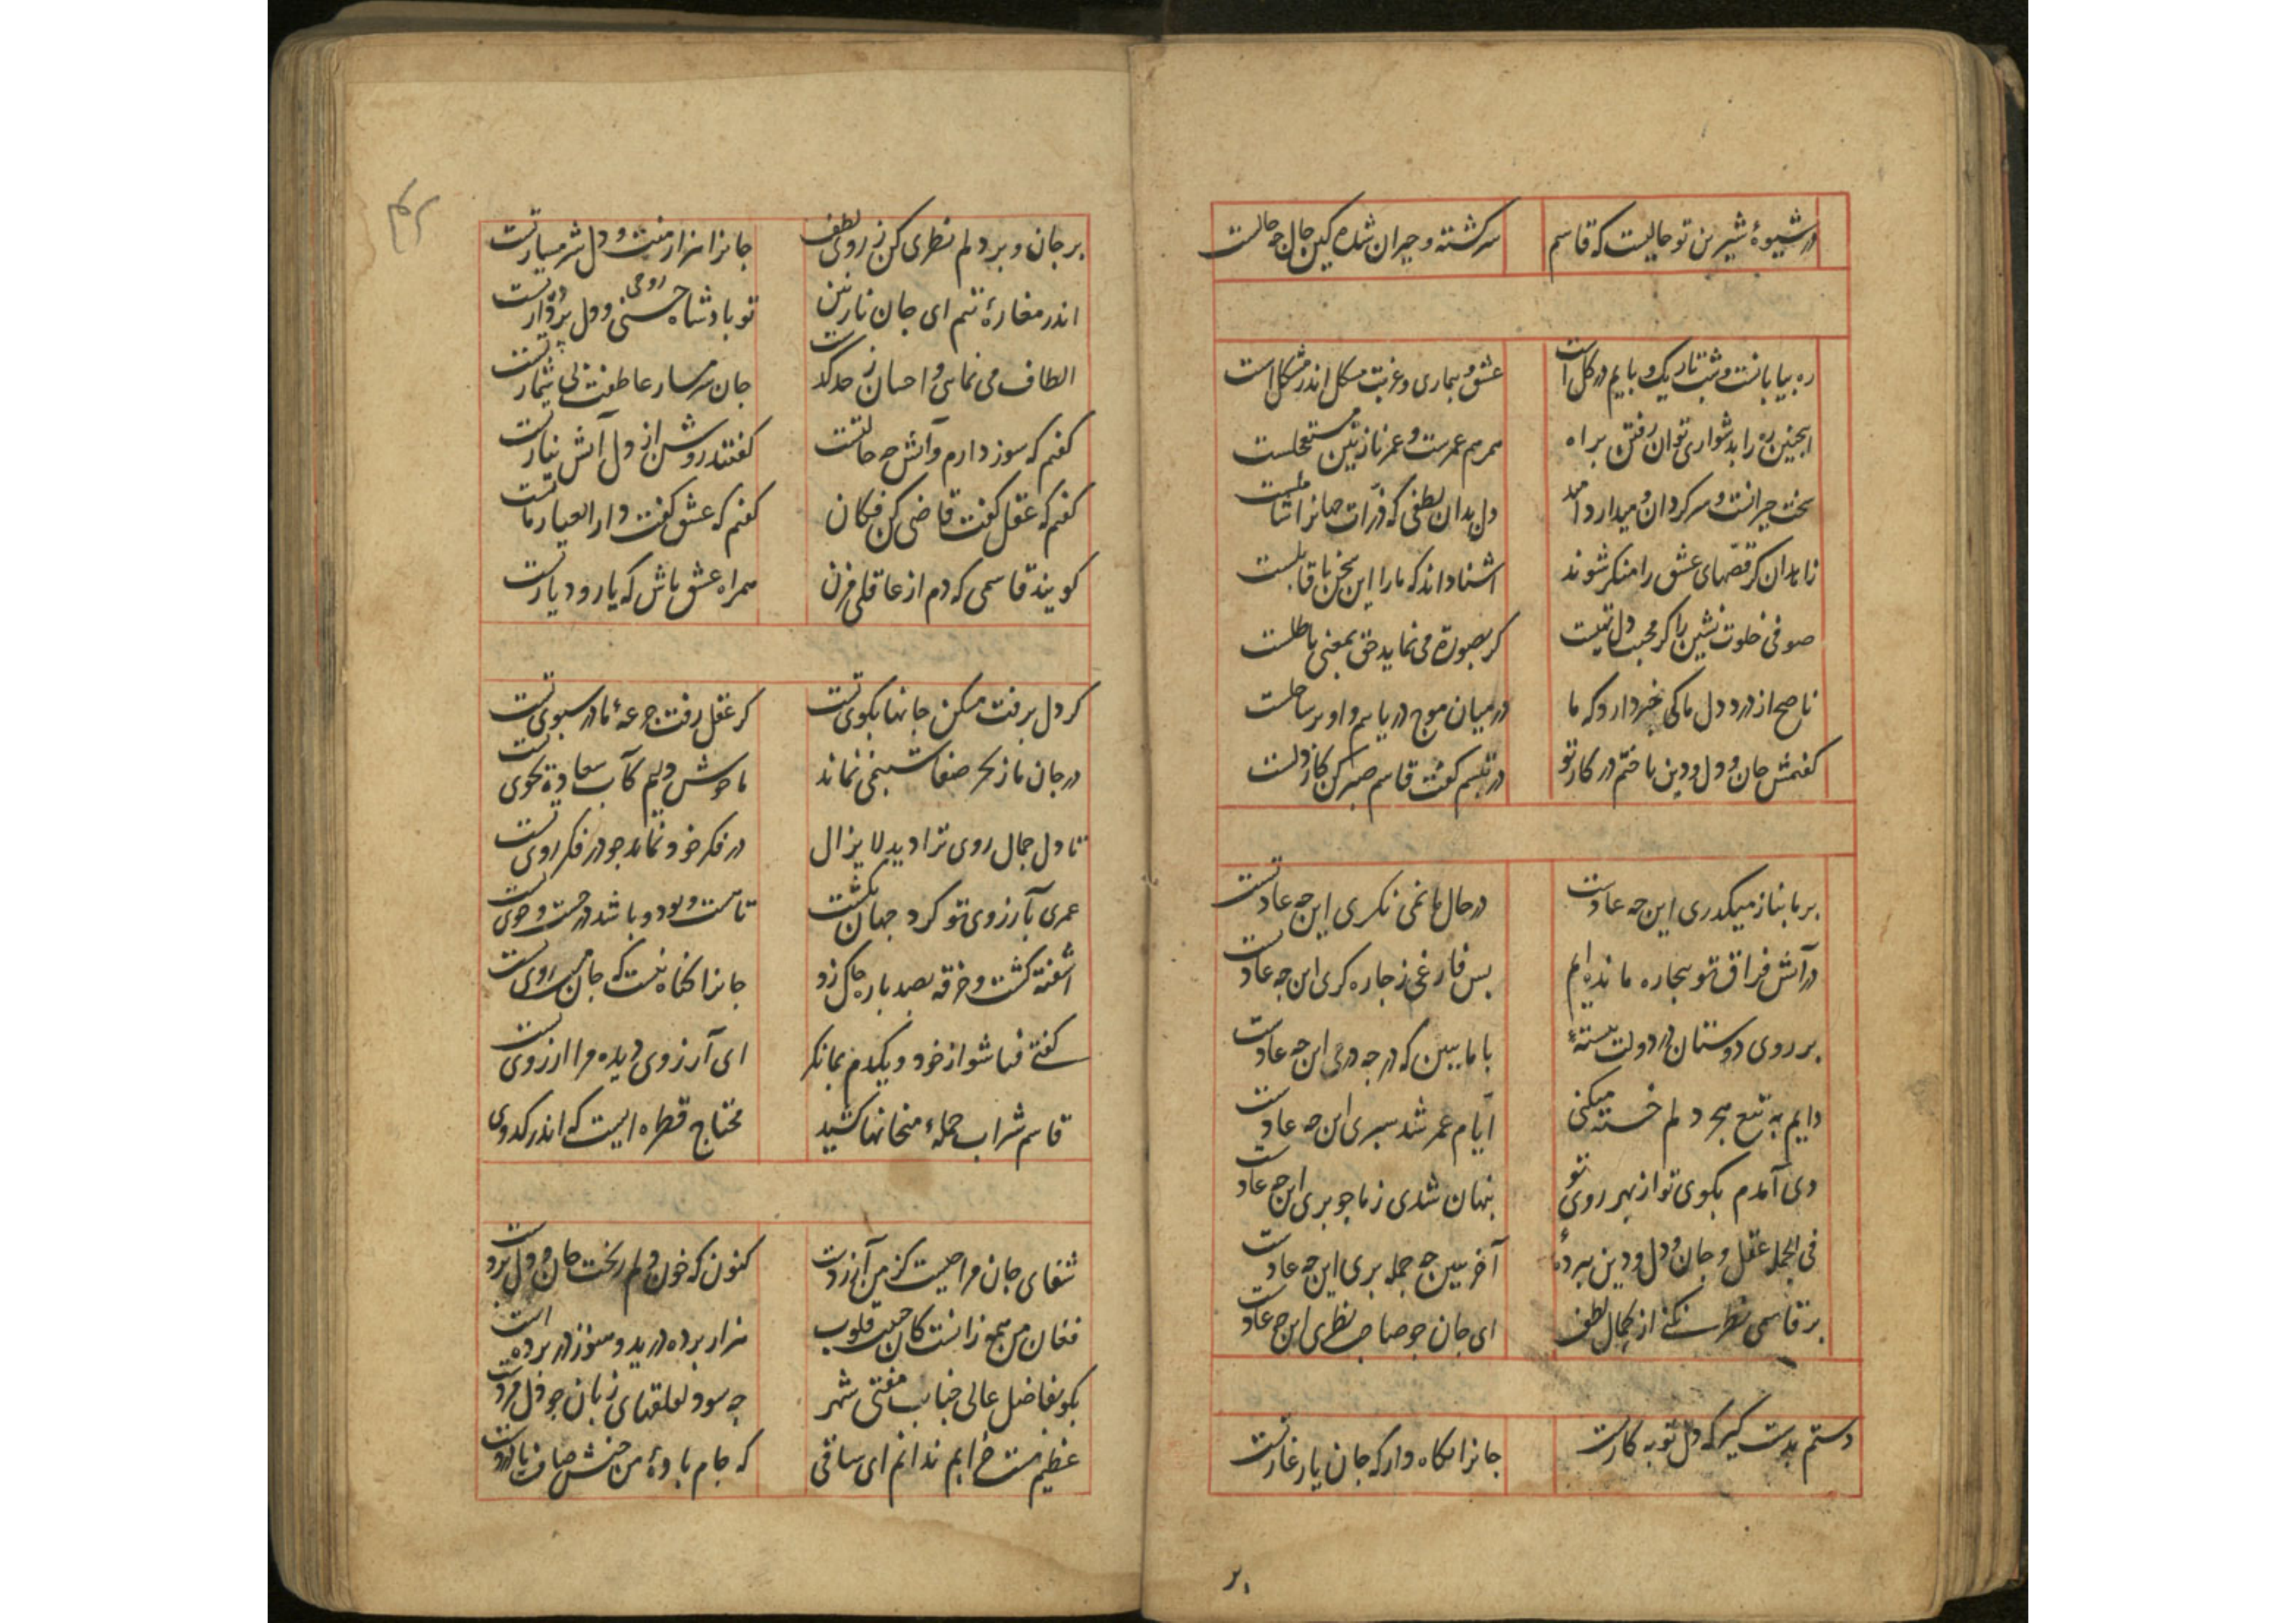 در شیوهٔ شیرین تو حالیست که قاسم
سرکشته و حیران شده کین حال چه حالست
ره بیابانست و شب تاریک و پایم در کل است
عشق و بیماری و غربت مشکل اندر مشکل است
اینچنین ره را بدشواری توان رفتن براه
همرهم عمرست و عمر نازنین مستعجلست
سخت حیرانست و سرکردان و میدارد امید
دل بدان لطفی که ذرات جهانرا شاملست
زاهدان کر قصهای عشق را منکر شوند
آشنا داند که ما را این سخن با قابلست
صوفی خلوت نشین را کر محبت دل نیست
کر بصورة می نماید حق بمعنی باطلست
ناصح از درد دل ما کی خبر دارد که ما
در میان موج دریاییم و او بر ساحلست
کفتمش جان و دل و دین باختم در کار تو
در تبسم کفت قاسم صبر کن کار دلست
بر ما بناز میکذری این چه عادتست
در حال ما نمی نکری این چه عادتست
در آتش فراق تو بیچاره مانده ایم
بس فارغی ز چاره کری این چه عادتست
بر روی دوستان در دولت ببستهٔ
با ما ببین که در چه دری این چه عادتست
دایم به تیغ هجر دلم خسته میکنی
ایام عمر شد سپری این چه عادتست
دی آمدم بکوی تو از بهر روی تو
پنهان شدی ز ما چو پری این چه عادتست
فی الجمله عقل و جان و دل و دین ببردهٔ
آخر ببین چه جمله بری این چه عادتست
بر قاسمی نظر نکنی از کمال لطف
ای جان چو صاحب نظری این چه عادتست
دستم بدست کیر که دل تو به کارست
جانرا نکاه دار که جان یار غارتست
بر جان و بر دلم نظری کن ز روی لطف
جانرا هزار منت و دل شرمسار تست
اندر مغارهٔ تنم ای جان نازنین
تو بادشاه حسنی روحی و دل پرده دار تست
الطاف می نمایی و احسان ز حد کذشت
جان شرمسار عاطفت بی شمار تست
کفتم که سوز دارم و آتش چه حالتست
کفتند روشن از دل آتش نثار تست
کفتم که عقل کفت قاضی کن فکان
کفتم که عشق کفت دار العیار ماست
کویند قاسمی که دم از عاقلی مزن
همراه عشق باش که یار و دیار تست
کر دل برفت مسکن جانها بکوی تست
کر عقل رفت جرعهٔ ما در سبوی تست
در جان ما ز بحر صفا شبنمی نماند
ما خوش دلیم کآب سعادة بجوی تست
تا دل جمال روی ترا دید لا یزال
در فکر خود نماند چو در فکر روی تست
عمری بآرزوی تو کرد جهان بکشت
تا هست و بود و باشد در جست و جوی تست
آشفته کشت و خرقه بصد باره چاک زد
جانرا کناه نیست که جان مست روی تست
کفتی فنا شو از خود و یکدم بما نکر
ای آرزوی دیده مرا ارزوی تست
قاسم شراب جملهٔ میخانها کشید
محتاج قطره ایست که اندر کدوی تست
شفای جان مرا چیست کز من آزردست
کنون که خون دلم ریخت جان و دل بردست
فغان من همه زانست کان حبیب قلوب
هزار برده درید و هنوز در برده است
بکو بفاضل عالی جناب مفتی شهر
چه سود لقلقهای زبان چو دل مردست
عظیم مست خرابم ندانم ای ساقی
که جام بادهٔ من جنس صاف یا دردست